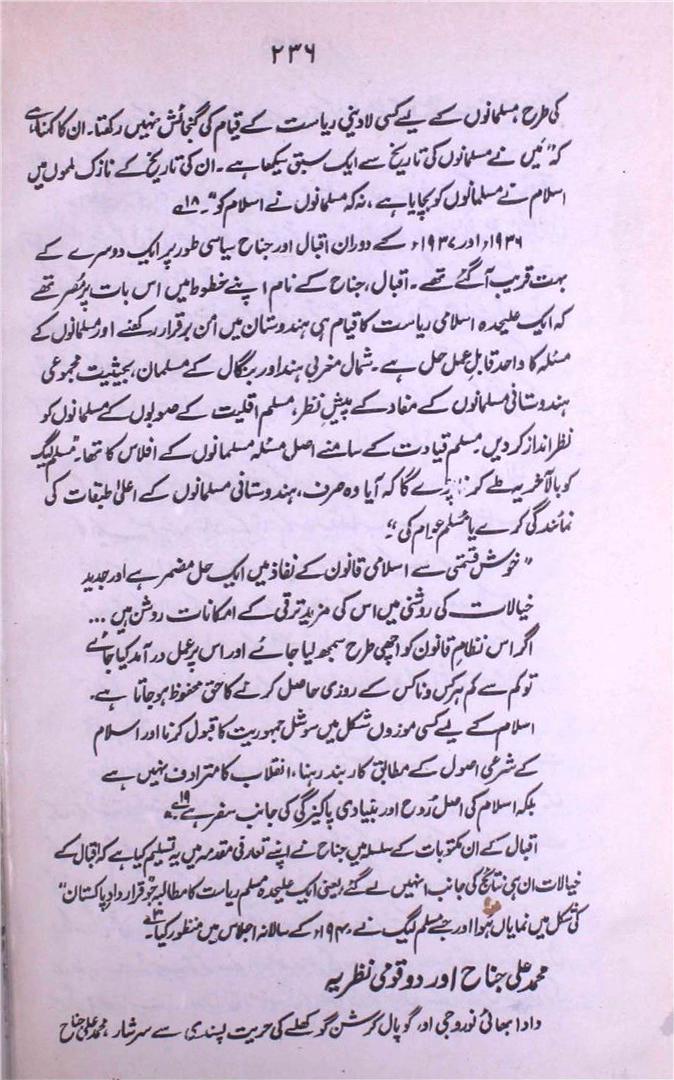 ۲۳۶
کی طرح مسلمانوں کے لیے کسی لادینی ریاست کے قیام کی گنجائش نہیں رکھتا۔ ان کا کہنا ہے
کہ "میں نے مسلمانوں کی تاریخ سے ایک سبق سیکھا ہے۔ ان کی تاریخ کے نازک لمحوں میں
اسلام نے مسلمانوں کو بچایا ہے، نہ کہ مسلمانوں نے اسلام کو"۔ ۱۸؎
۱۹۳۶ء اور ۱۹۳۷ء کے دوران اقبال اور جناح سیاسی طور پر ایک دوسرے کے
بہت قریب آگئے تھے۔ اقبال، جناح کے نام اپنے خطوط میں اس بات پر مُصر تھے
کہ ایک علیحدہ اسلامی ریاست کا قیام ہی ہندوستان میں امن برقرار رکھنے اور مسلمانوں کے
مسئلہ کا واحد قابلِ عمل حل ہے۔ شمال مغربی ہند اور بنگال کے مسلمان، بحیثیت مجموعی
ہندوستانی مسلمانوں کے مفاد کے پیشِ نظر، مسلم اقلیت کے صوبوں کے مسلمانوں کو
نظر انداز کر دیں۔ مسلم قیادت کے سامنے اصل مسئلہ مسلمانوں کے افلاس کا تھا۔ "مسلم لیگ
کو بالآخر یہ طے کرنا پڑے گا کہ آیا وہ صرف، ہندوستانی مسلمانوں کے اعلیٰ طبقات کی
نمائندگی کرے یا مُسلم عوام کی"۔
"خوش قسمتی سے اسلامی قانون کے نفاذ میں ایک حل مضمر ہے اور جدید
خیالات کی روشنی میں اس کی مزید ترقی کے امکانات روشن ہیں ...
اگر اس نظامِ قانون کو اچھی طرح سمجھ لیا جائے اور اس پر عمل درآمد کیا جائے
تو کم سے کم ہر کس و ناکس کے روزی حاصل کرنے کا حق محفوظ ہو جاتا ہے۔
اسلام کے لیے کسی موزوں شکل میں سوشل جمہوریت کا قبول کرنا اور اسلام
کے شرعی اصول کے مطابق کاربند رہنا، انقلاب کا مترادف نہیں ہے
بلکہ اسلام کی اصل رُوح اور بنیادی پاکیزگی کی جانب سفر ہے"۱۹؎
اقبال کے ان مکتوبات کے سلسلہ میں جناح نے اپنے تعارفی مقدمہ میں یہ تسلیم کیا ہے کہ اقبال کے
خیالات ان ہی نتائج کی جانب انہیں لے گئے، یعنی ایک علیحدہ مسلم ریاست کا مطالبہ جو "قرارداد پاکستان"
کی شکل میں نمایاں ہوا اور جسے مسلم لیگ نے ۱۹۴۰ء کے سالانہ اجلاس میں منظور کیا۔
محمد علی جناح اور دو قومی نظریہ
دادا بھائی نوروجی اور گوپال کرشن گوکھلے کی حریت پسندی سے سرشار، محمد علی جناح